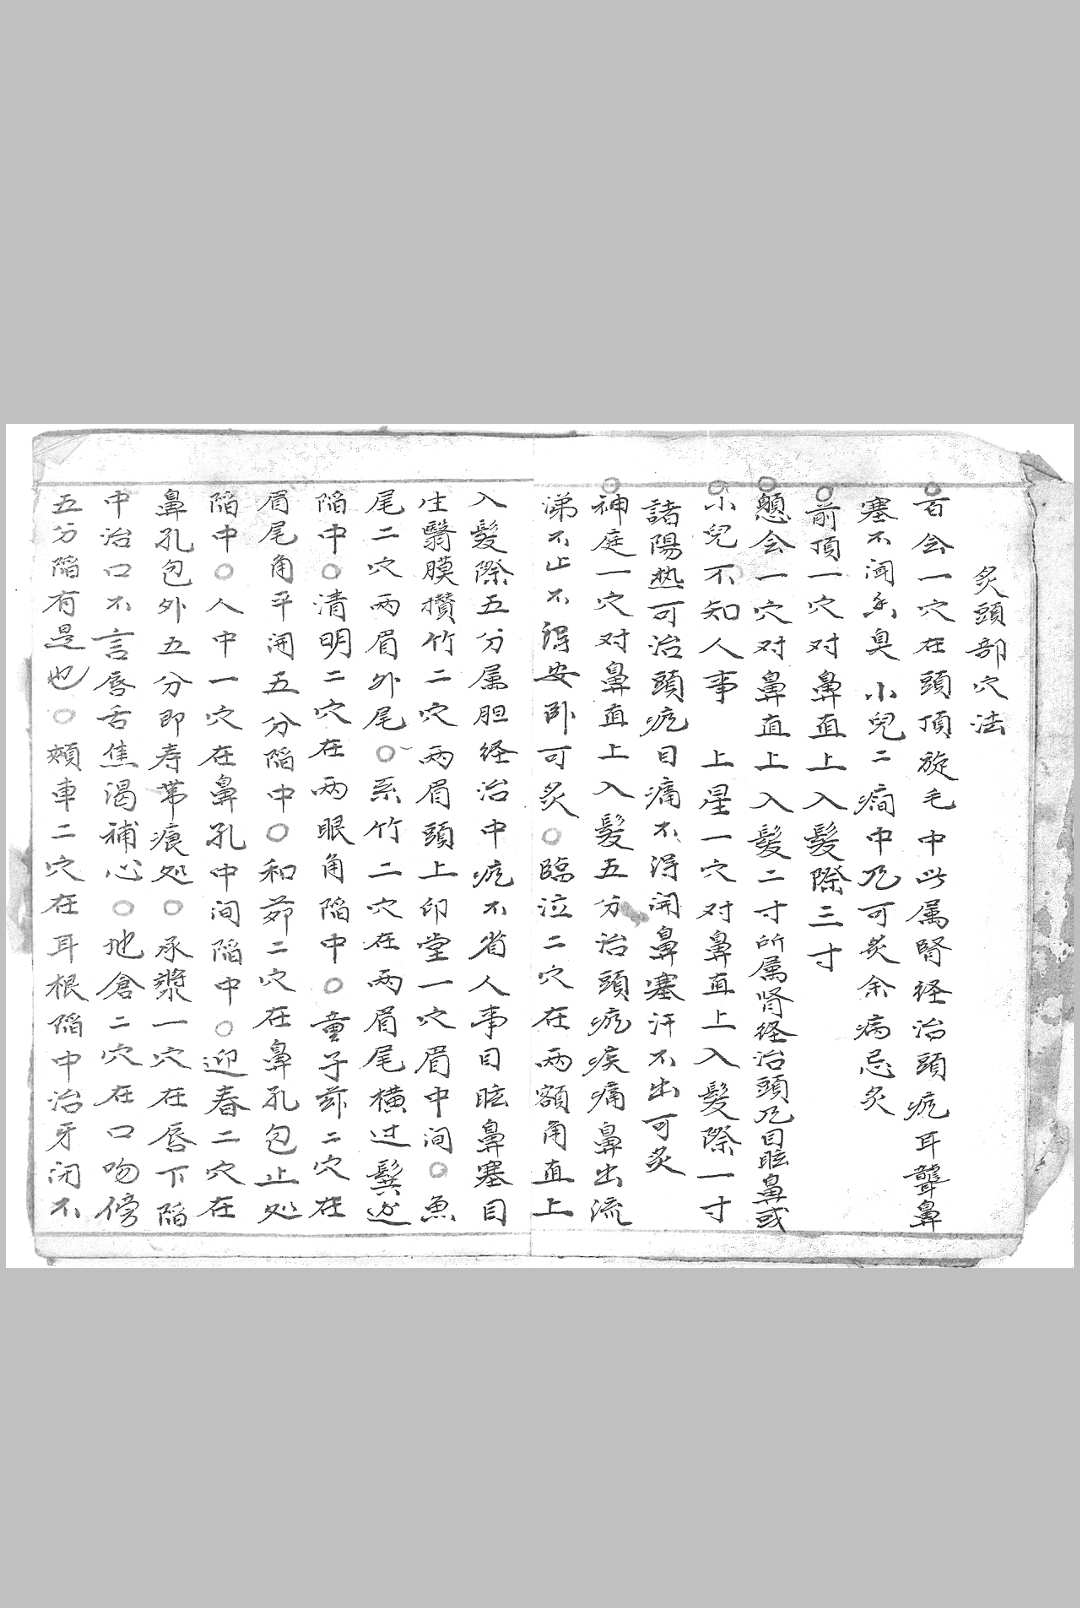 灸頭部穴法
○百会一穴在頭頂旋毛中此属腎経治頭疼耳聾鼻
塞不闻香臭小兒二癇中凡可灸余病忌灸
○前頂一穴对鼻直上入髮際三寸
○顖会一穴对鼻直上入髮二寸所属肾経治頭凡目眩鼻或
○小兒不知人事 上星一穴对鼻直上入髮際一寸
諸陽热可治頭疼目痛不淂開鼻塞汗不出可灸
○神庭一穴对鼻直上入髮五分治頭疼疾痛鼻出流
涕不止不淂安卧可灸○臨泣二穴在两額角直上
入髮際五分属胆経治中疼不省人事目眩鼻塞目
生翳膜攅竹二穴两眉頭上印堂一穴眉中间○魚
尾二穴两眉外尾○系竹二穴在两眉尾横过鬓边
陷中○清明二穴在两眼角陷中○童子茆二穴在
眉尾角平闲五分陷中○和茆二穴在鼻孔包止处
陷中○人中一穴在鼻孔中间陷中○迎春二穴在
鼻孔包外五分即寿苐痕处○承漿一穴在唇下陷
中治口不言唇舌焦渴補心○地倉二穴在口吻傍
五分陷有是也○頰車二穴在耳根陷中治牙闭不